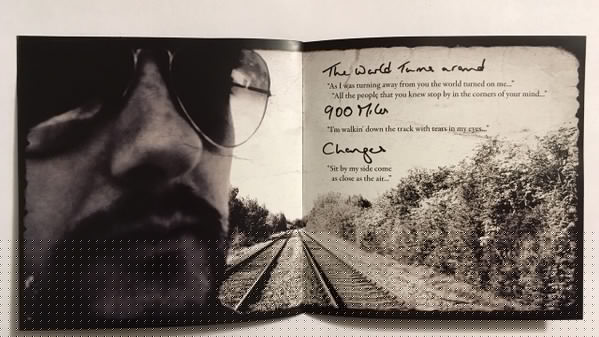 The World Turns around
"As I was turning away from you the world turned on me..."
"All the people that you knew stop by in the corners of your mind..."
900 Miles
"I'm walkin' down the track with tears in my eyes..."
Changes
"Sit by my side come
as close as the air..."